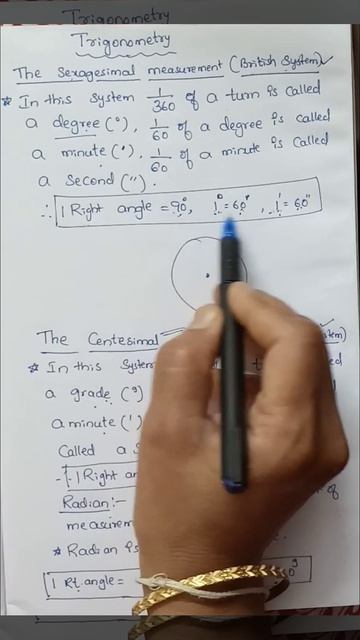 Trigonometry
Trigonometry
The Sexagesimal measurement (British System)
* In this System 1/360 of a turn is called
a degree (°), 1/60 of a degree is called
a minute ('), 1/60 of a minute is called
a second (").
∴ 1 Right angle = 90°, 1° = 60', 1' = 60"
The Centesimal
* In this System
a grade (g)
a minute (')
Called a
1 Right
Radian :-
* Radian is
1 Rt. angle =